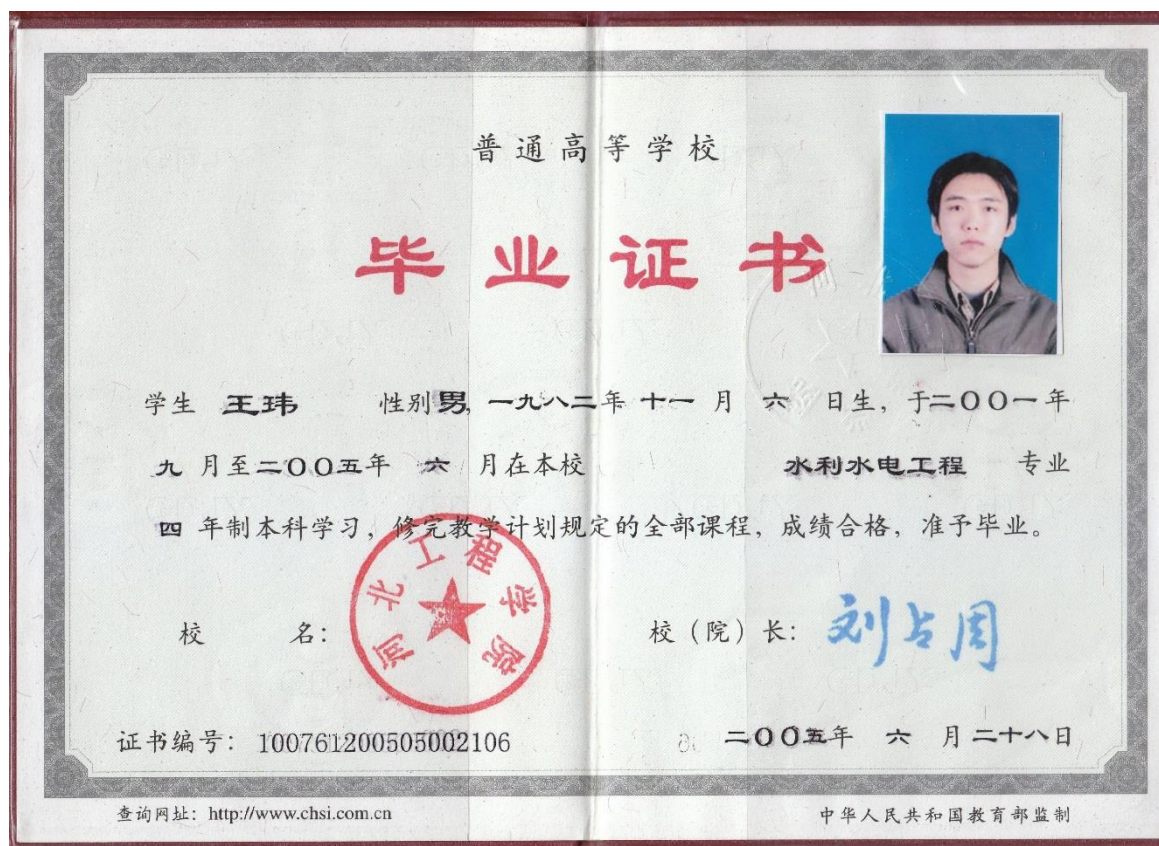 普通高等学校
毕业证书
学生 王玮 性别男, 一九八二年 十一 月 六 日生，于二〇〇一年
九 月至二〇〇五年 六 月在本校 水利水电工程 专业
四 年制本科学习，修完教学计划规定的全部课程，成绩合格，准予毕业。
河北工程学院
校 名：
校（院）长： 刘占周
证书编号：100761200505002106
二〇〇五年 六 月二十八日
查询网址：http://www.chsi.com.cn
中华人民共和国教育部监制